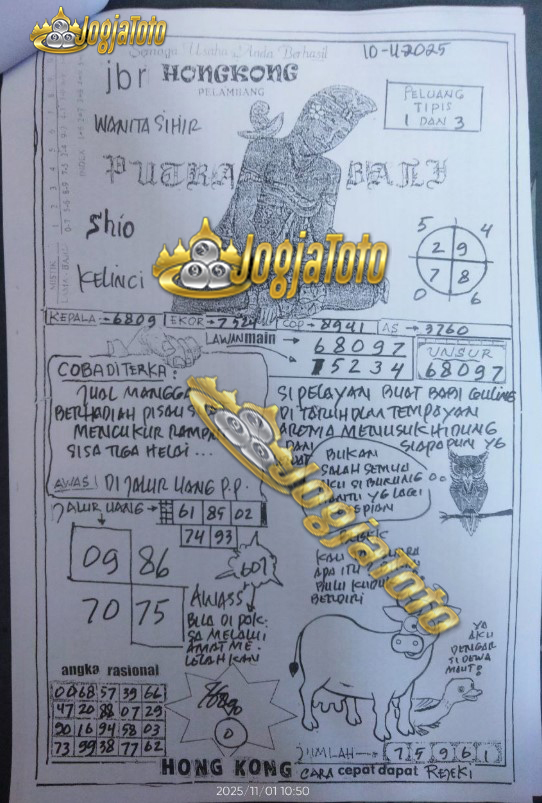 JogjaToto
Semoga Usaha Anda Berhasil
10-11.2025
jbr HONGKONG
PELAMBANG
PELUANG
TIPIS
1 DAN 3
WANITA SIHIR
PUTRA BALI
Shio
5 4
2 9
7 8
0 6
JogjaToto
KELINCI
KEPALA → 6809 EKOR → COP → 8941 AS → 3760
LAWAN main
68097
15234
UNSUR
68097
COBA DITERKA:
JUAL MANGGA
BERHADIAH PISAU
MENCUKUR
SISA TIGA HELAI ...
AWAS! DI JALUR UANG P.P.
SI PELAYAN BUAT BABI GULING
DI TARUH DLM TEMPAYAN
AROMA MENUSUK HIDUNG
DAN SIAPAPUN YG
BUKAN
SALAH SEMUA
SI BURUNG
YG LAGI
JALUR UANG → 61 89 02
74 93
09 86
70 75
JogjaToto
AWASS
BILA DI PAK
SA MELALUI
AMAT ME
LELAHKAN
APA ITU
BULU
BERDIRI
YA
AKU
DENGAR
SI DEWA
MAUT?
angka rasional
00 68 57 39 66
47 20 88 07 29
90 16 94 58 03
73 99 38 77 62
0
JUMLAH → 7 5 9 6 1
HONG KONG CARA cepat dapat REJEKI
2025/11/01 10:50